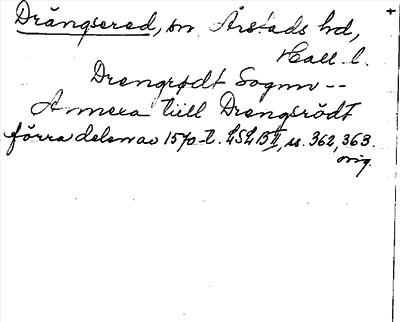 Drängsered, sn Årstads hd,
Hall. l.
Drengrødt Sognn --
Annexa till Drengsrödt
förra delen av 1570-t. LSLB II, s. 362, 363.
orig.